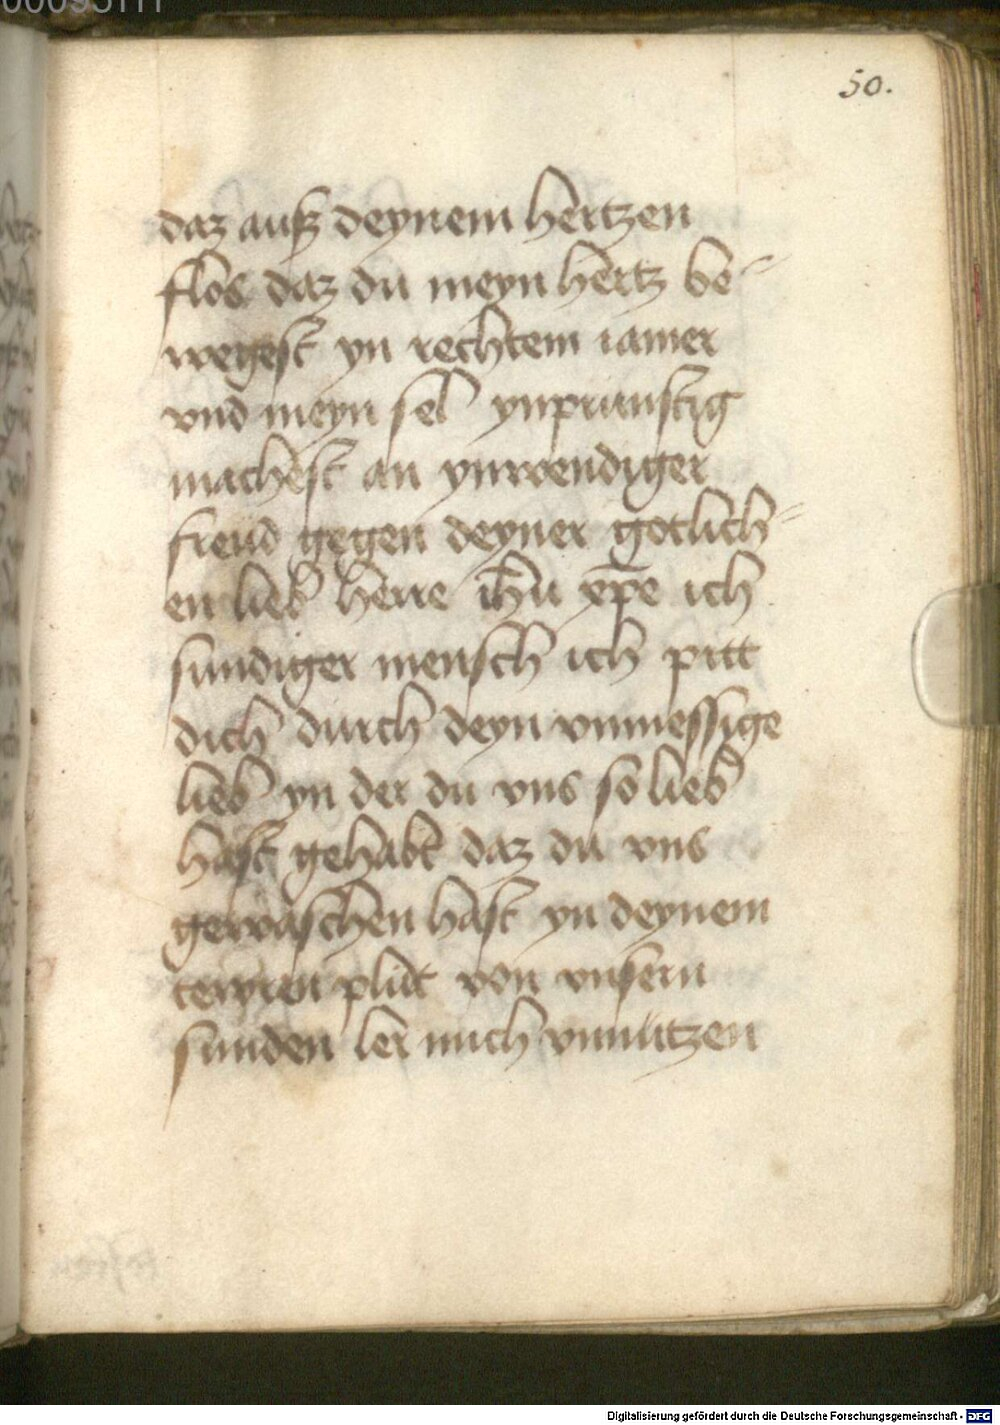 50.
daz auß deynem hertzen
flos daz du meyn hertz be-
wegest yn rechtem iamer
vnd meyn sel ynprunstig
machest an ynwendiger
freud gegen deyner gotlich-
en lieb herre ihu xpe ich
sundiger mensch ich pitt
dich durch deyn vnmessige
lieb yn der du vns so lieb
hast gehabt daz du vns
gewaschen hast yn deynem
tewren plut von vnsern
sunden ler mich vnnützen
Digitalisierung gefördert durch die Deutsche Forschungsgemeinschaft - DFG